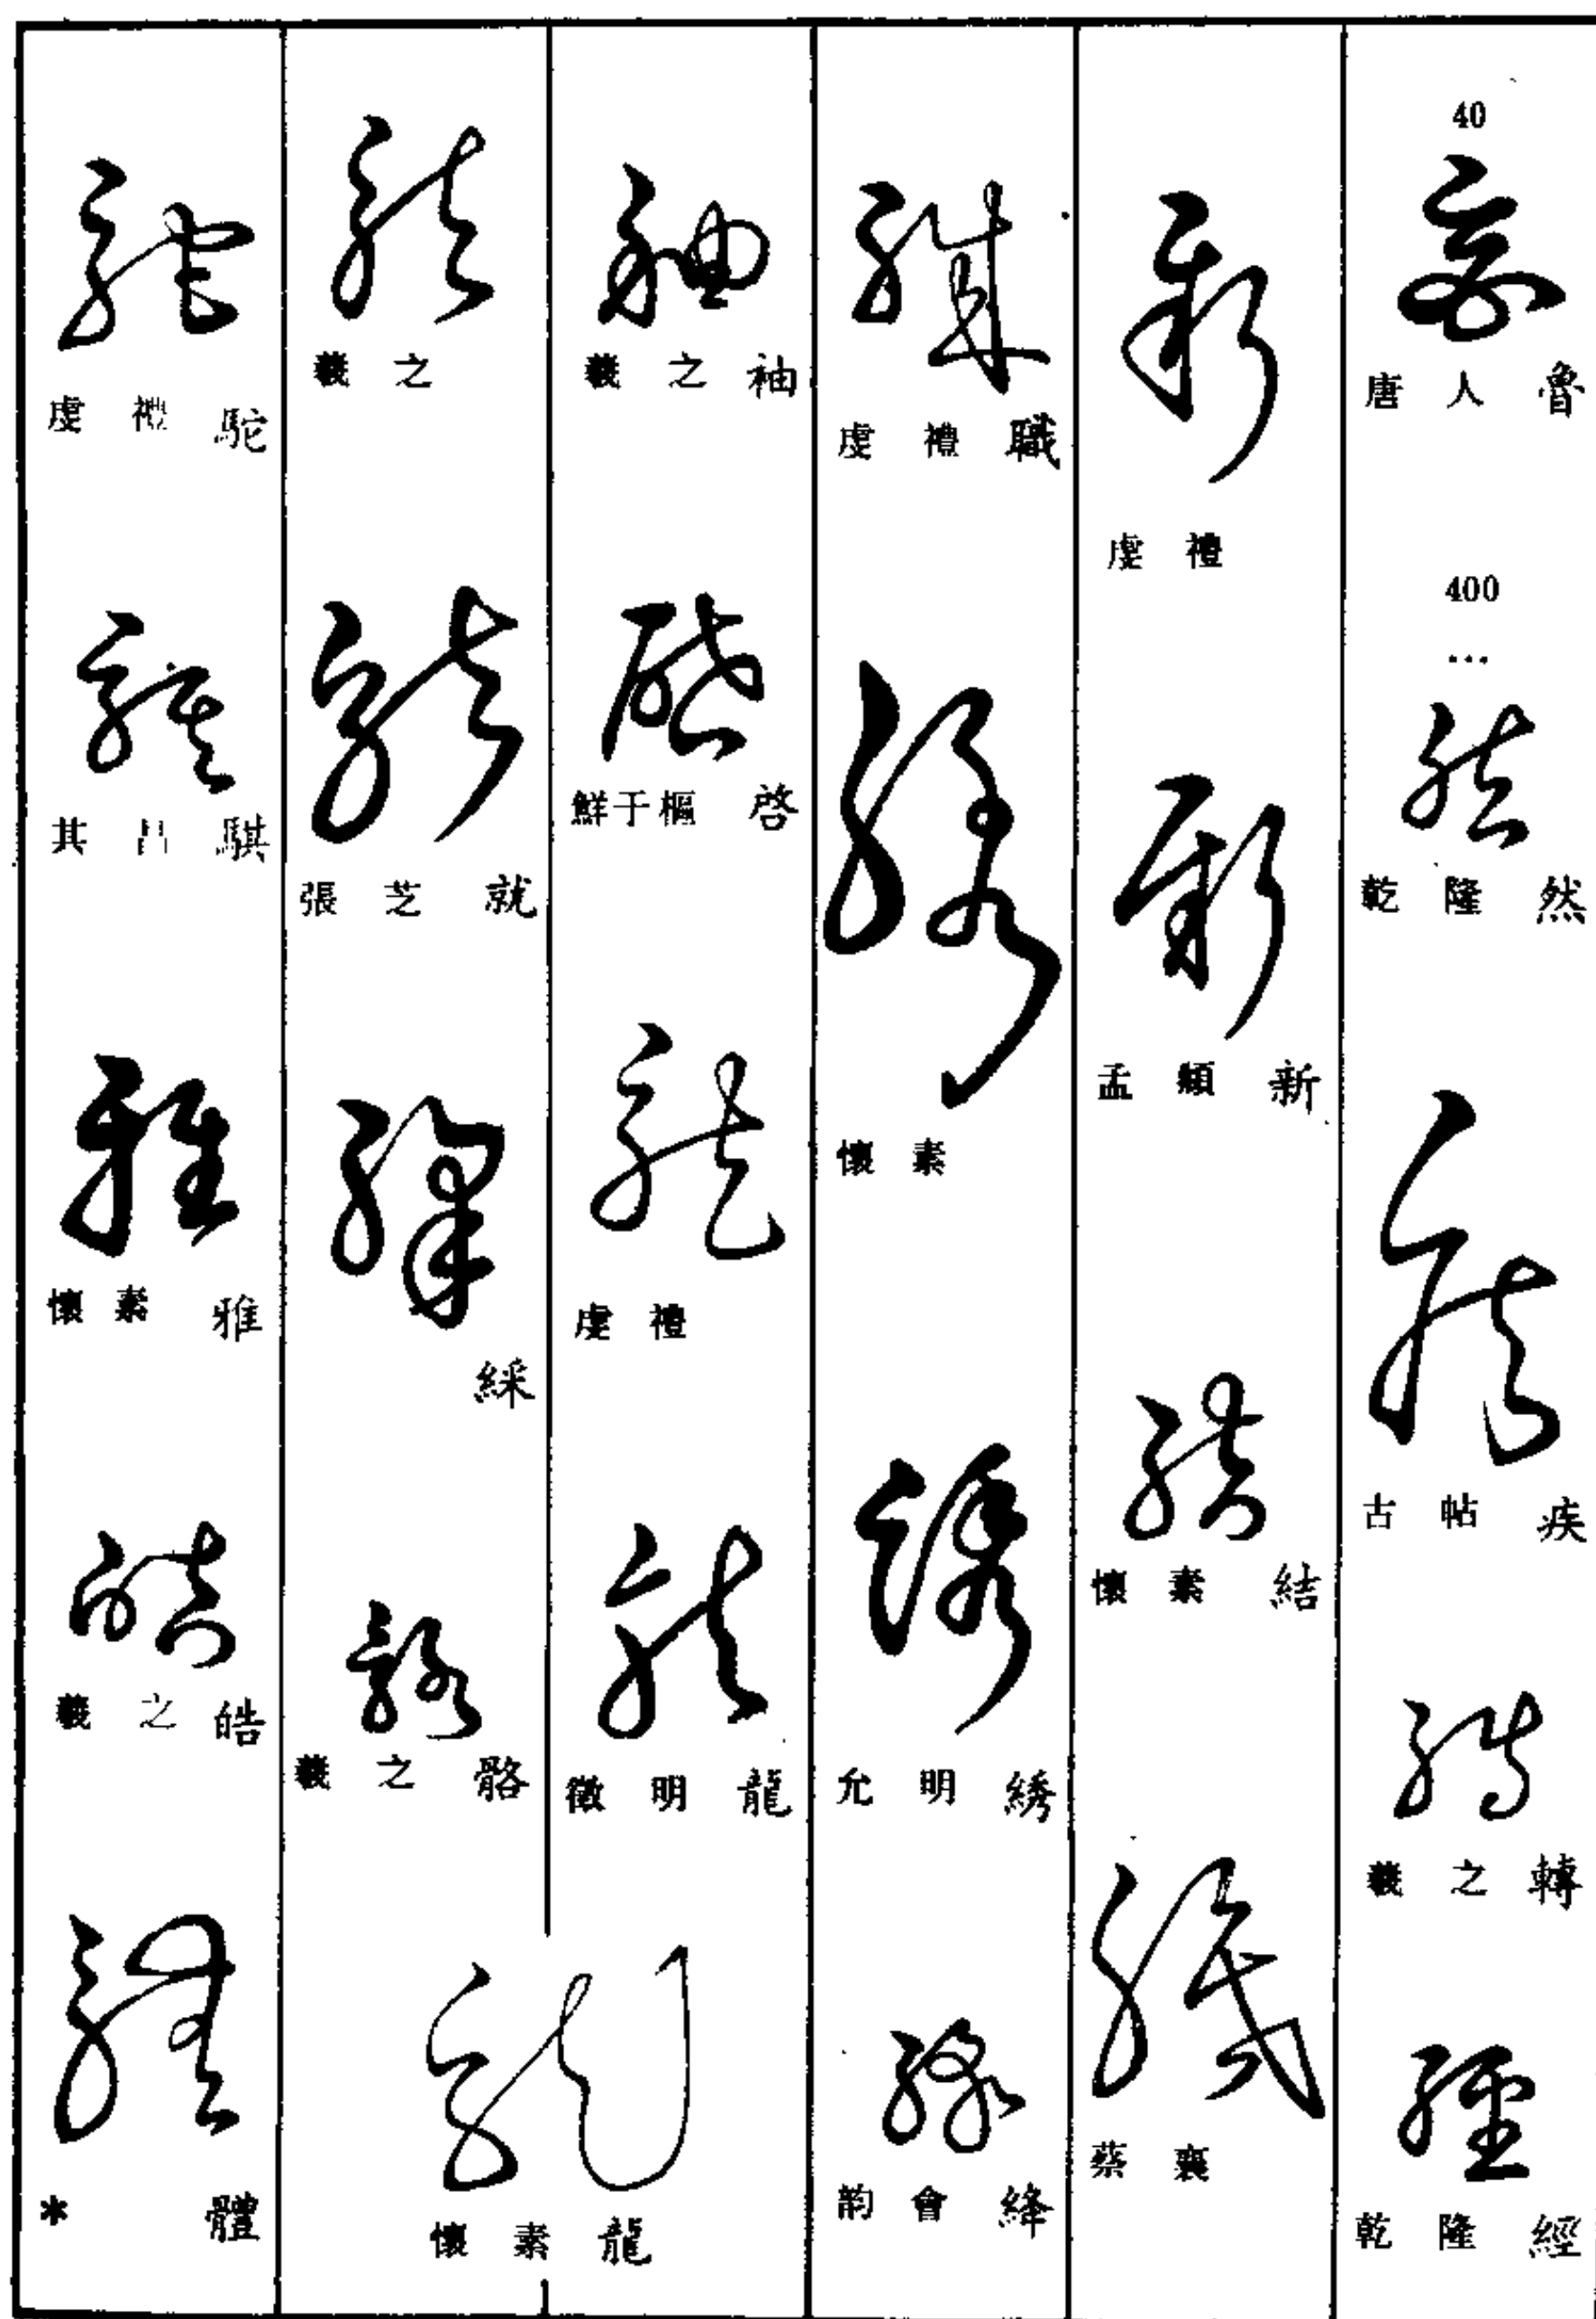 40
唐人 魯
400
...
乾隆 然
古帖 疾
羲之 轉
乾隆 經
虔禮
孟頫 新
懷素 結
蔡襄
虔禮 職
懷素
允明 綉
韵會 絳
羲之 袖
鮮于樞 啓
虔禮
徵明 龍
懷素 龍
羲之
張芝 就
綵
羲之 骼
虔禮 駝
其昌 騏
懷素 雅
羲之 皓
* 體